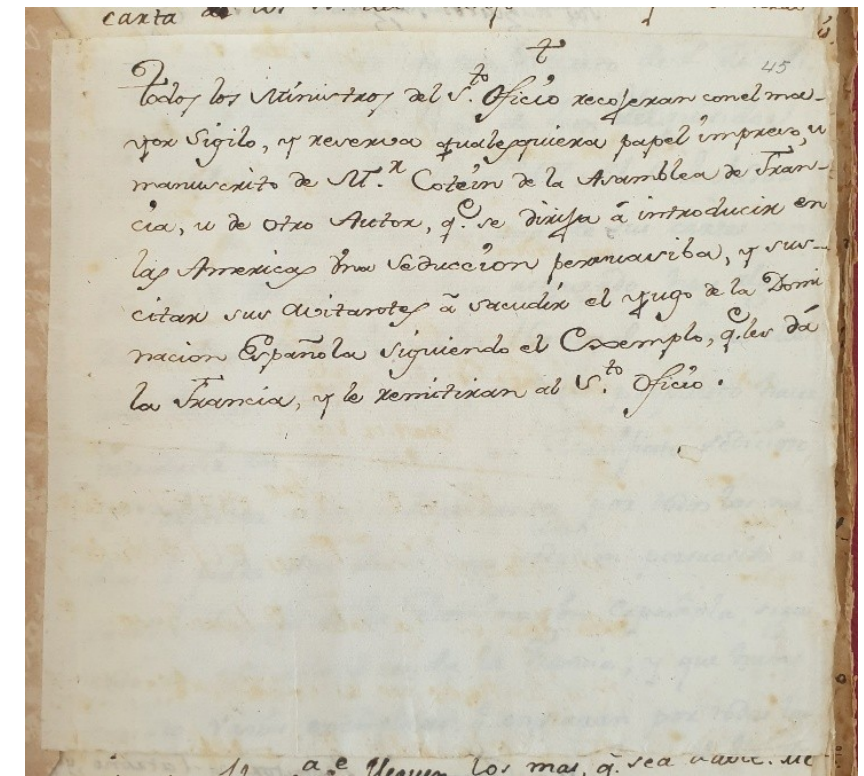 carta
45
Todos los Ministros del S.to Oficio recojeran con el ma-
yor Sigilo, y reserva qualesquiera papel impreso, u
manuscrito de M.r Cotein de la Asamblea de Fran-
cia, u de otro Autor, q.e se dirija â introducir en
las Americas una Seduccion persuasiba, y sus-
citar sus avitantes â sacudir el yugo de la Domi
nacion Española siguiendo el Exemplo, q.e les dá
la Francia, y le remitiran al S.to Oficio.
lleguen los mas, q. sea dable. Me